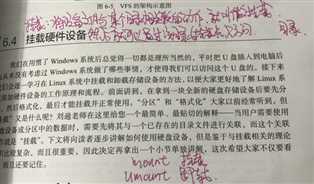 图 6-5　VFS 的架构示意图
挂载：
6.4　挂载硬件设备
我们在用惯了 Windows 系统后总觉得一切都是理所当然的，平时把 U 盘插入到电脑后
从来没有考虑过 Windows 系统做了哪些事情，才使得我们可以访问这个 U 盘的。接下来
会逐一学习在 Linux 系统中挂载和卸载存储设备的方法，以便大家更好地了解 Linux 系
硬件设备的工作原理和流程。前面讲到，在拿到一块全新的硬盘存储设备后要先分
然后格式化，最后才能挂载并正常使用。“分区”和“格式化”大家以前经常听到，但
载”又是什么呢？刘遄老师在这里给您一个最简单、最贴切的解释——当用户需要使用
设备或分区中的数据时，需要先将其与一个已存在的目录文件进行关联，而这个关联
就是“挂载”。下文将向读者逐步讲解如何使用硬盘设备，但是鉴于与挂载相关的理论
比较复杂，而且很重要，因此决定再拿出一个小节单独讲解，这次希望大家不仅要看
而且还要记住。
mount 挂载
umount 卸载